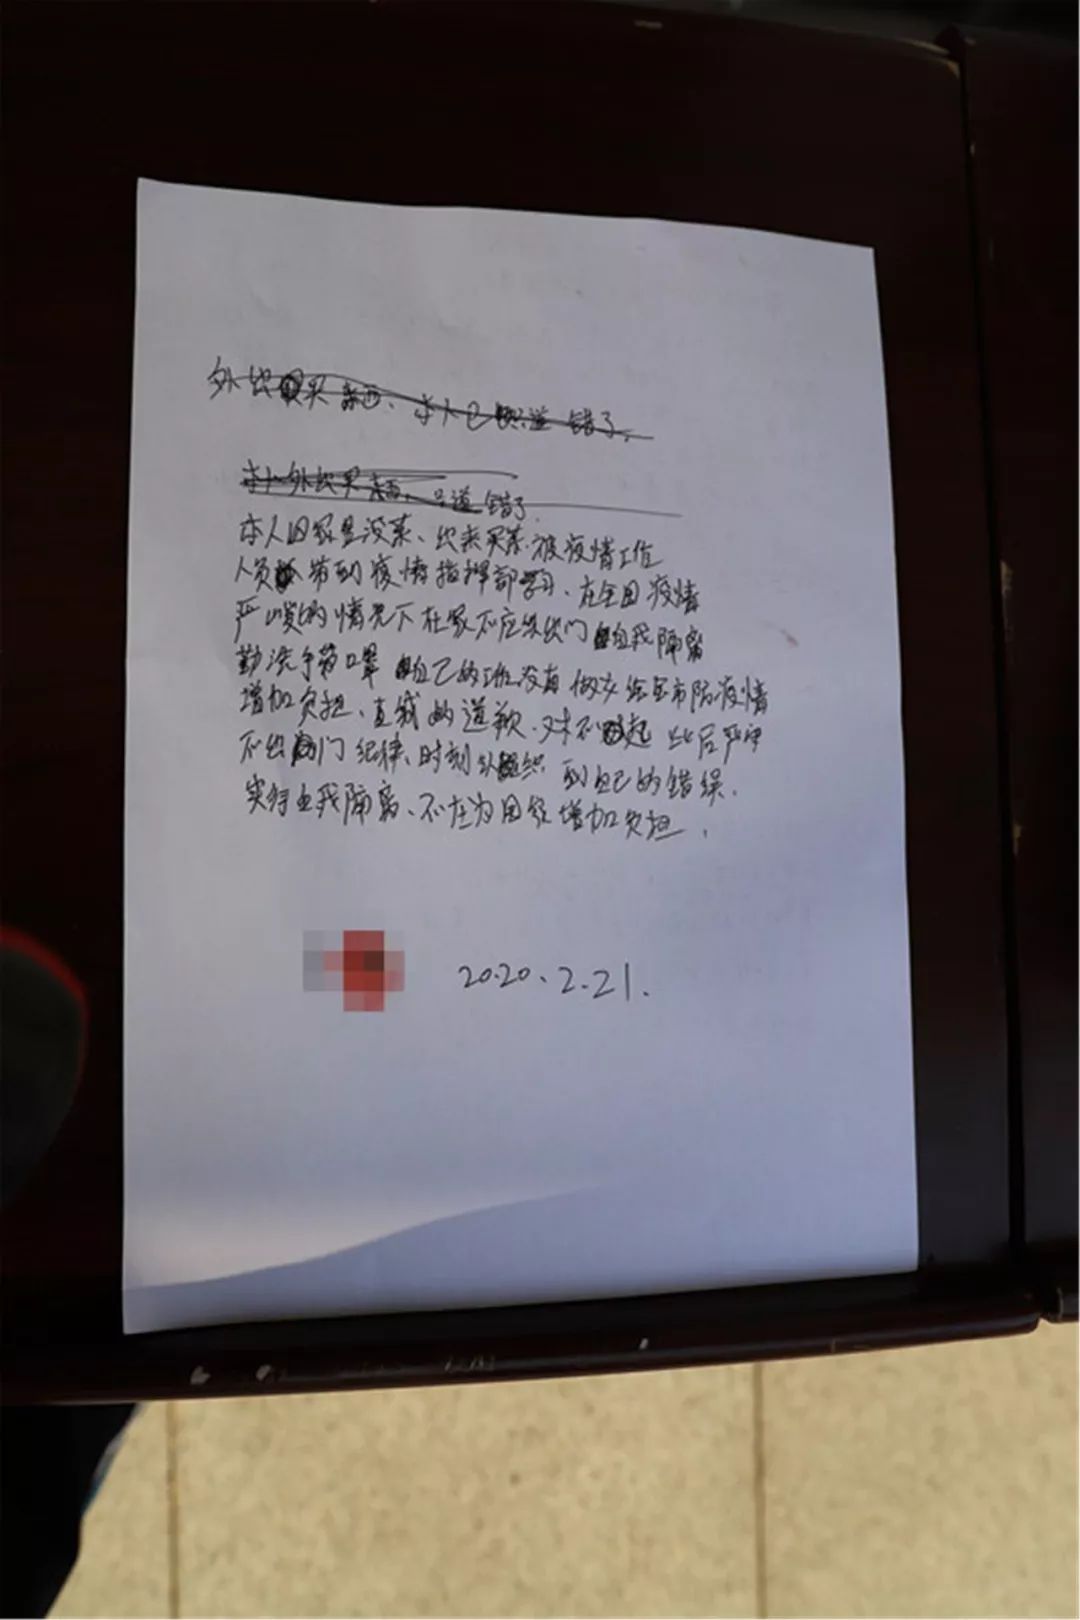 外出买东西、本人已知道错了.
本人外出买东西、知道错了.
本人因家里没菜、出来买菜.被疫情工作
人员带到疫情指挥部学习、在全国疫情
严峻的情况下在家不应该出门自我隔离
勤洗手带口罩 自己的工作没有做好给全市防疫情
增加负担、真诚的道歉.对不起 此后严守
不出门纪律、时刻 到自己的错误.
实行自我隔离、不在为国家增加负担.
2020.2.21.